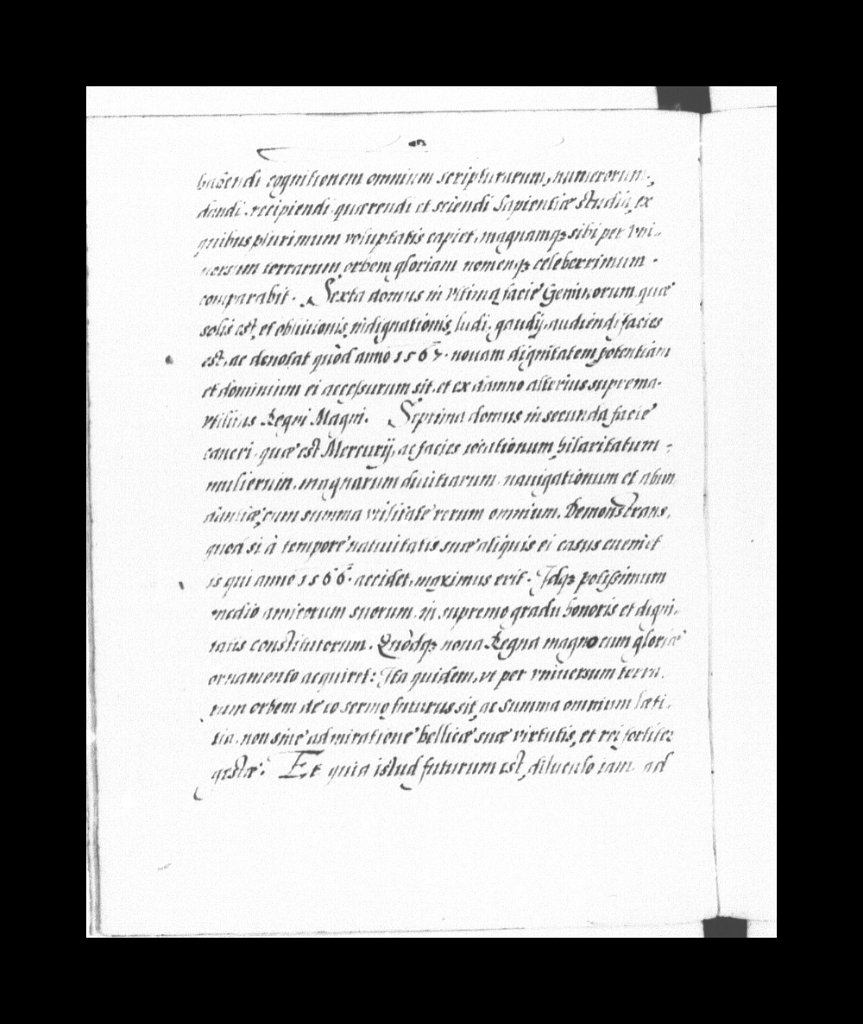 habendi cognitionem omnium scripturarum, numerorum,
dandi, recipiendi, quærendi et sciendi Sapientiæ studia, ex
quibus plurimum voluptatis capiet, magnamq; sibi per vni-
uersum terrarum orbem gloriam nomenq; celeberrimum
comparabit. Sexta domus in vltima facie Geminorum, quæ
solis est, et obliuionis, indignationis, ludi, gaudij, audiendi facies
est, ac denotat quòd anno 1567. nouam dignitatem potentiam
et dominium ei accessurum sit, et ex damno alterius suprema
vtilitas Regni Magni. Septima domus in secunda facie
cancri, quæ est Mercurij, ac facies iocationum, hilaritatum,
mulierum, magnarum diuitiarum, nauigationum et abun
dantiæ, cum summa vtilitate rerum omnium. Demonstrans,
quod si à tempore natiuitatis suæ aliquis ei casus euenit
is qui anno 1566. accidet, maximus erit. Idq; potissimum
medio amicorum suorum, in supremo gradu honoris et digni-
tatis constitutorum. Quòdq; noua Regna magno cum gloriæ
ornamento acquiret: Ita quidem, vt per vniuersum terra,
rum orbem de eo sermo futurus sit, ac summa omnium læti,
tia, non sine admiratione bellicæ suæ virtutis, et rei fortiter
gestæ. Et quia istud futurum est, diluendo iam ad